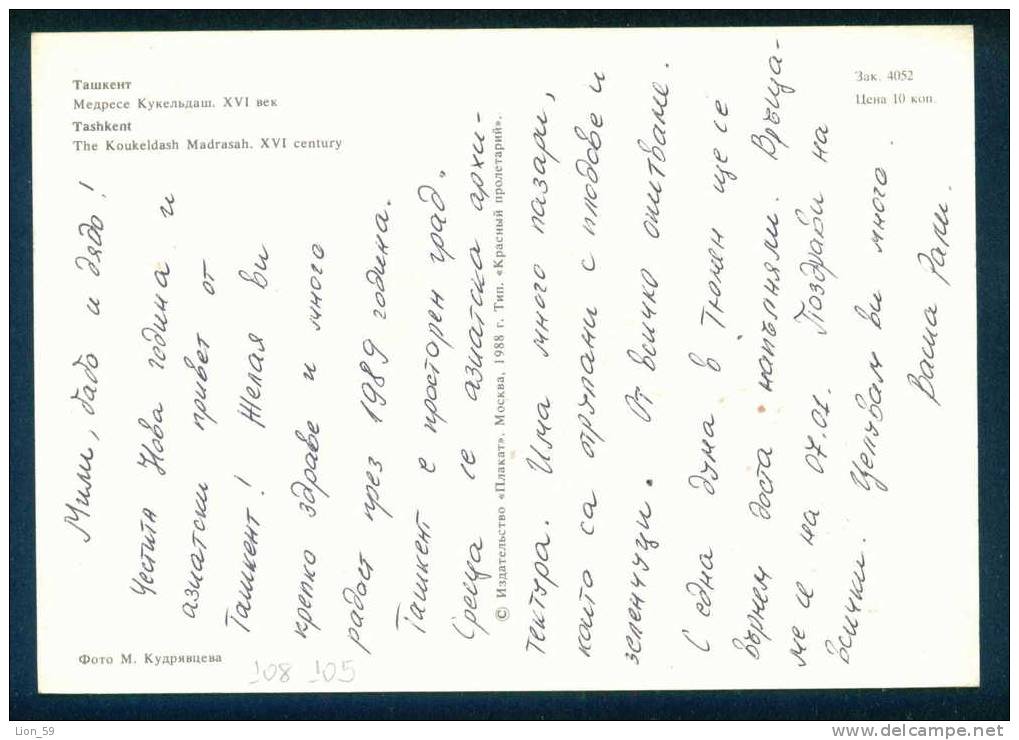 Ташкент
Медресе Кукельдаш. XVI век
Tashkent
The Koukeldash Madrasah. XVI century
Зак. 4052
Цена 10 коп.
Мили, бабо и дядо!
Честита Нова година и
азиатски привет от
Ташкент! Желая ви
крепко здраве и много
радост през 1989 година.
Ташкент е просторен град.
Среща се азиатска архи-
© Издательство «Плакат». Москва, 1988 г. Тип. «Красный пролетарий».
тектура. Има много пазари,
които са отрупани с плодове и
зеленчуци. От всичко опитваме.
С една дума в Тюмен ще се
върнем доста напълняли. Връща-
ме се на 07.01. Поздрави на
всички. Целувам ви много.
Ваша Рали.
Фото М. Кудрявцева
108 105
Lion_59
www.delcampe.net